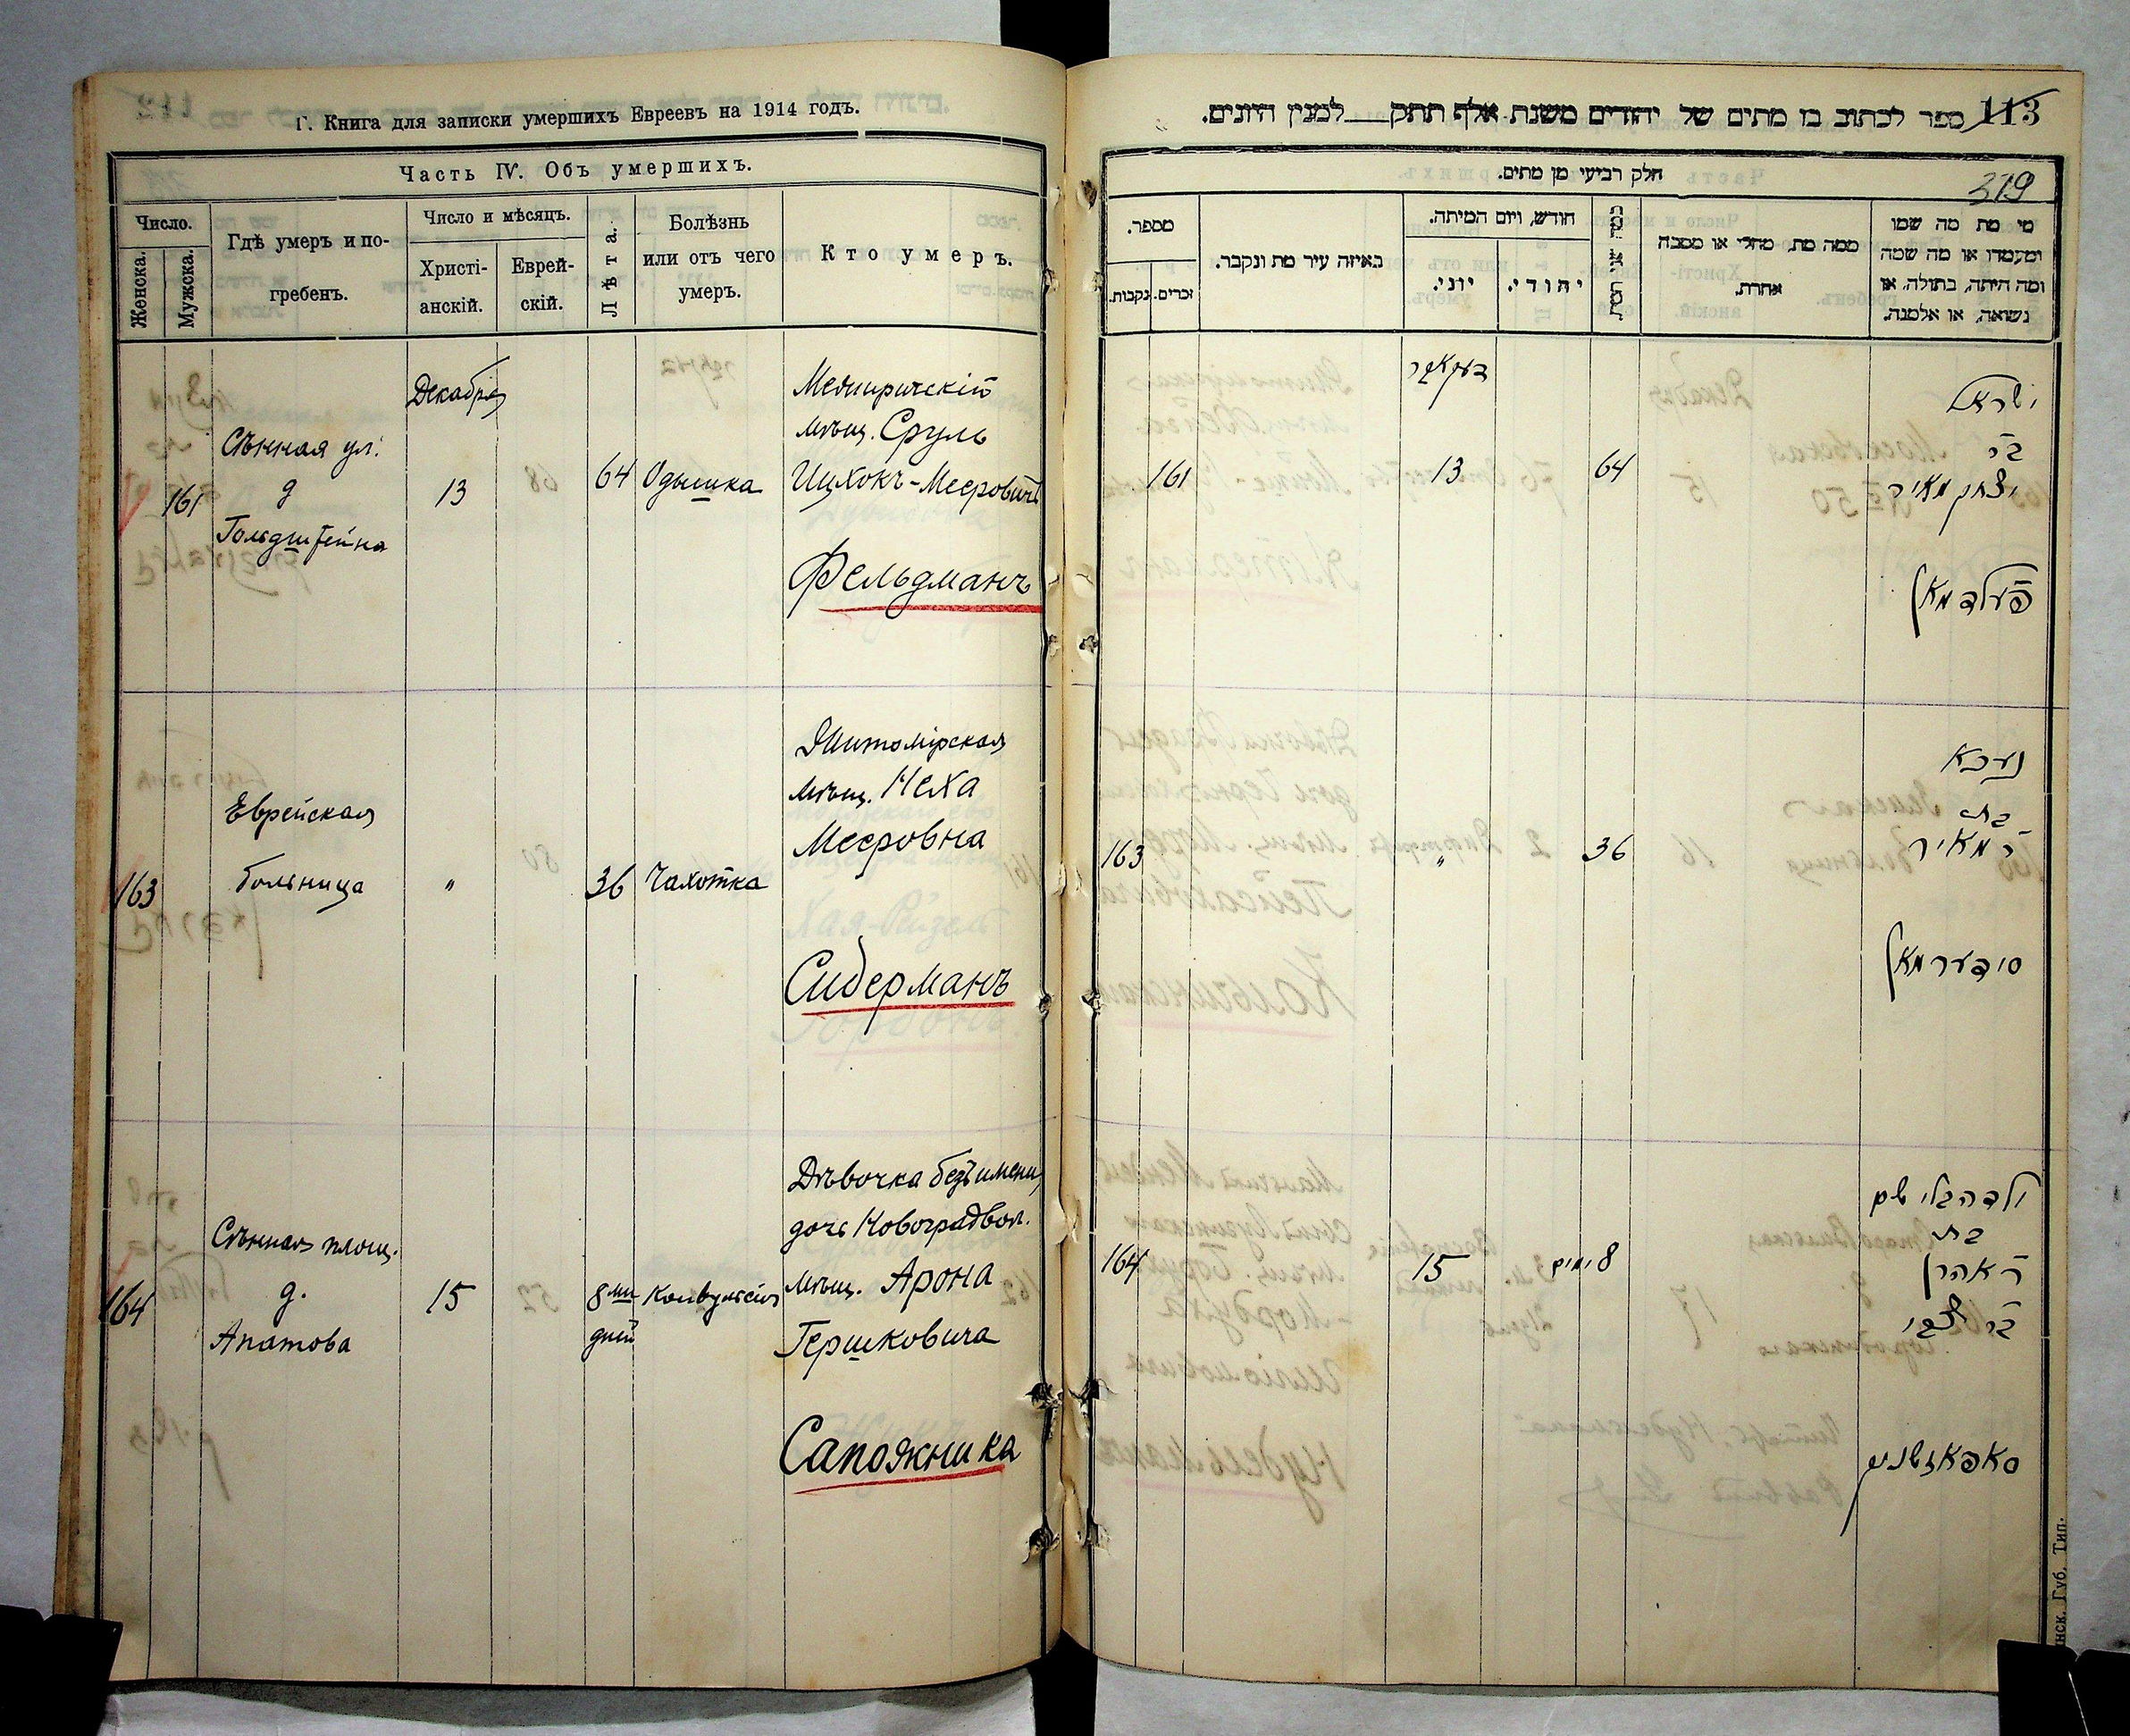 Г. Книга для записки умершихъ Евреевъ на 1914 годъ.
Часть IV. Объ умершихъ.
Число.
Женска.
Мужска.
Гдѣ умеръ и по-
гребенъ.
Число и мѣсяцъ.
Христі-
анскій.
Еврей-
скій.
Лѣта.
Болѣзнь
или отъ чего
умеръ.
Кто умеръ.
161
Сѣнная ул.
д
Гольдштейна
Декабрь
13
64
Одышка
Межиричскій
мѣщ. Сруль
Ицхокъ-Мееровичъ
Фельдманъ
163
Еврейская
больница
"
36
Чахотка
Житомірская
мѣщ. Неха
Мееровна
Сидерманъ
164
Сѣнная площ.
д.
Апатова
15
8ми
дней
Конвульсія
Дѣвочка безъ имени,
дочь Новоградвол.
мѣщ. Арона
Гершковича
Сапожника
113
ספר לכתוב בו מתים של יהודים משנת אלף תתק למנין היונים.
319
חלק רביעי מן מתים.
מי מת מה שמו
ומעמדו או מה שמה
ומה היתה, בתולה, או
נשואה, או אלמנה.
ממה מת, מחלי או מסבה
אחרת.
חודש, ויום המיתה.
יהודי.
יוני.
באיזה עיר מת ונקבר.
מספר.
זכרים.
נקבות.
ישראל
בר
יצחק מאיר
פעלדמאן
64
דעקאבר
13
161
נעכא
בת
ר מאיר
סידערמאן
36
"
163
ילדה בלי שם
בת
ר אהרן
בר צבי
סאפאזשניק
8 ימים
15
164
нск. Губ. Тип.